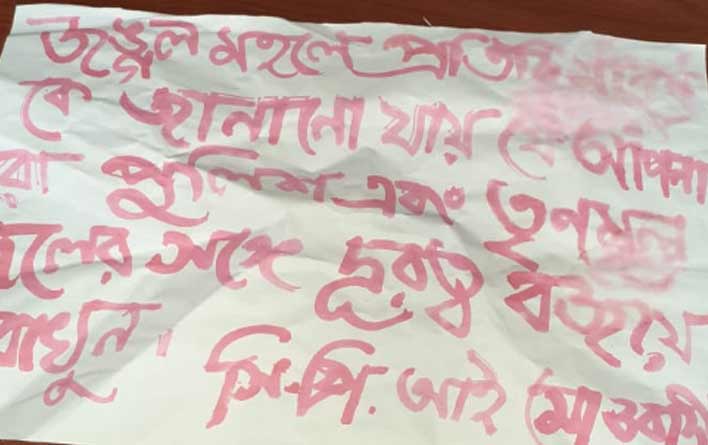 জঙ্গল মহলে প্রতিটি
কে জানানো যায় যে আপনা
রা পুলিশ এবং তৃণমূল
দলের সঙ্গে দূরত্ব বজায়
রাখুন।
সি.পি. আই (মাওবাদী